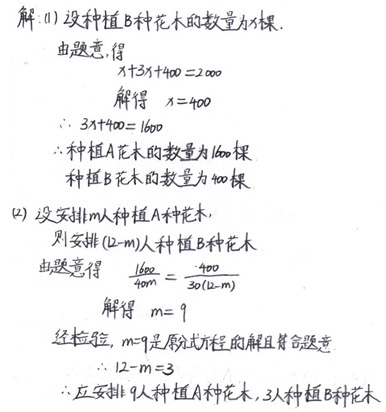 解:(1)设种植B种花木的数量为x棵.
由题意,得
x+3x+400=2000
解得 x=400
∴ 3x+400=1600
∴种植A花木的数量为1600棵
种植B花木的数量为400棵
(2) 设安排m人种植A种花木,
则安排(12-m)人种植B种花木
由题意得 1600/40m = 400/30(12-m)
解得 m=9
经检验, m=9是原分式方程的解且符合题意
∴ 12-m=3
∴应安排9人种植A种花木, 3人种植B种花木